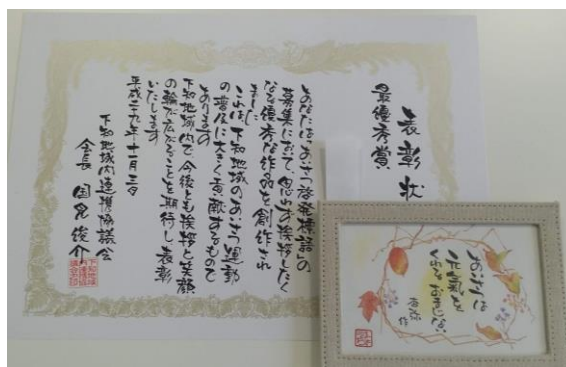 表彰状
最優秀賞
あなたは「あいさつ啓発標語」の
募集において、思わず挨拶したく
なる優秀な作品を創作され
ました
これは、下知地域のあいさつ運動
の普及に大きく貢献するもので
あります
下知地域内で、今後とも挨拶と笑顔
の輪が広がることを期待し、表彰
いたします
平成二十九年十一月三日
下知地域内連携協議会
会長 国見俊介
あいさつは
元氣を
おまじない
作